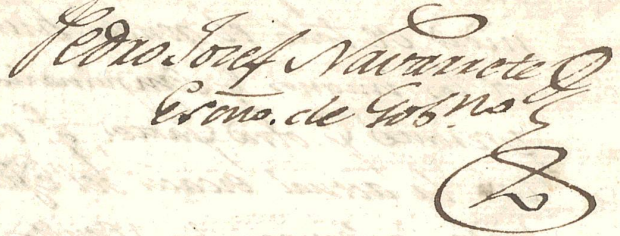 Pedro Josef Navarrete
Esno. de Gobno